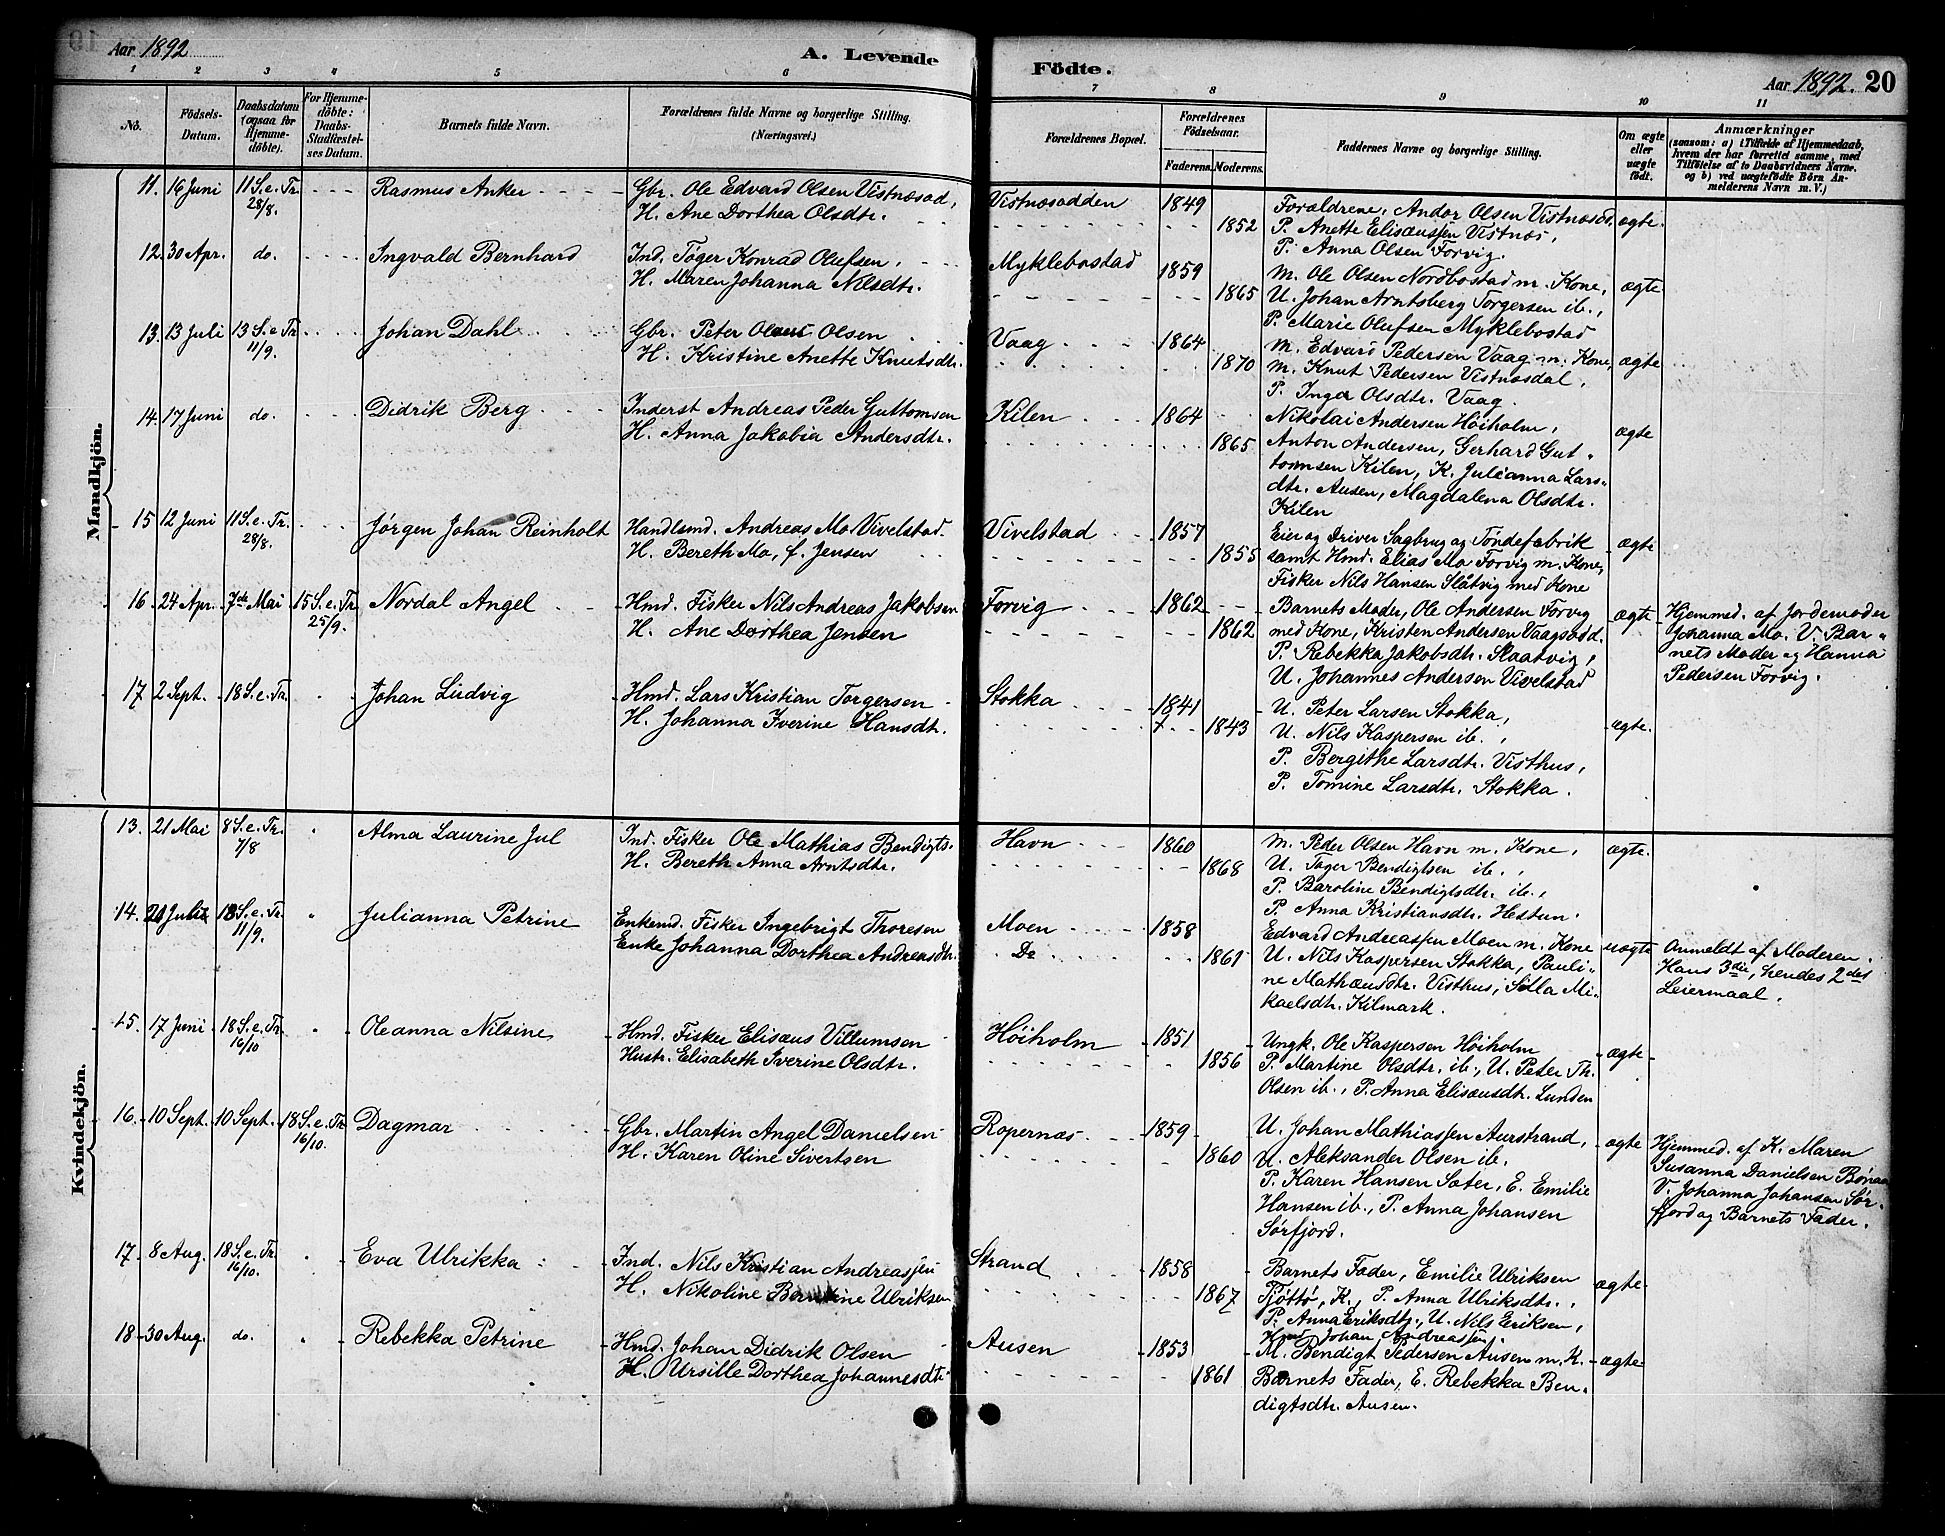 Aar 1892
A. Levende
Födte.
Aar 1892. 20
1 2 3 4 5 6 7 8 9 10 11
No.
Födsels-
Datum.
Daabsdatum
(ogsaa for
Hjemme-
döbte).
For Hjemme-
döbte:
Daabs-
Stadfæstel-
ses Datum.
Barnets fulde Navn.
Forældrenes fulde Navne og borgerlige Stilling.
(Næringsvei.)
Forældrenes Bopæl.
Forældrenes
Födselsaar.
Faderens. Moderens.
Faddernes Navne og borgerlige Stilling.
Om ægte
eller
uægte
födt.
Anmærkninger
(saasom: a) i Tilfælde af Hjemmedaab,
hvem der har forrettet samme, med
Tilföielse af to Daabsvidners Navne.
og b) ved uægtefödte Börn An-
melderens Navn m. V.)
Mandkjön.
11. 16 Juni 11 S. e. Tr.
28/8.
Rasmus Anker
Gbr. Ole Edvard Olsen Vistnæsod,
H. Ane Dorthea Olsdtr.
Vistnæsodden 1849
1852
Forældrene, Andor Olsen Vistnæsod,
P. Anette Elisæussen Vistnæs,
P. Anna Olsen Forvig.
ægte.
12. 30 Apr. do.
Ingvald Bernhard
Ind. Tøger Konrad Olufsen,
H. Maren Johanna Nilsdtr.
Myklebostad 1859
1865
M. Ole Olsen Nordbostad m. Kone,
U. Johan Arntsberg Torgersen ib.,
P. Marie Olufsen Myklebostad
ægte
13. 13 Juli 13 S. e. Tr.
11/9.
Johan Dahl
Gbr. Peter Olaus Olsen
H. Kristine Anette Knutsdtr.
Vaag 1864
1870
M. Edvard Pedersen Vaag m. Kone,
M. Knut Pedersen Vistnæsdal,
P. Inger Olsdtr. Vaag.
ægte
14. 17 Juni do.
Didrik Berg
Inderst Andreas Peder Guttomsen
H. Anna Jakobia Andersdtr.
Kilen 1864
1865
Nikolai Andersen Høiholm,
Anton Andersen, Gerhard Gut-
tomsen Kilen, K. Julianna Lars-
dtr. Ausen, Magdalena Olsdtr.
Kilen
ægte
15 12 Juni 11 S. e. Tr.
28/8.
Jørgen Johan Reinholt
Handlsmd. Andreas Mo Vivelstad.
H. Bereth Mo, f. Jensen
Vivelstad 1857
1855
Eier og Driver Sagbrug og Tøndefabrik
samt Hmd. Elias Mo Forvig m. Kone,
Fisker Nils Hansen Slåtvig med Kone
ægte
16 24 Apr. 7de Mai 15 S. e. Tr.
25/9.
Nordal Angel
Hmd. Fisker Nils Andreas Jakobsen
H. Ane Dorthea Jensen
Forvig 1862
1862
Barnets Moder, Ole Andersen Forvig
med Kone, Kristen Andersen Vaagsodd.
P. Rebekka Jakobsdtr. Slaatvig,
U. Johannes Andersen Vivelstad
ægte
Hjemmed. af Jordemoder
Johanna Mo. V. Bar-
nets Moder og Hanna
Pedersen Forvig.
17 2 Sept. 18 S. e. Tr.
Johan Ludvig
Hmd. Lars Kristian Torgersen
H. Johanna Iverine Hansdtr.
Stokka 1841
1843
U. Peter Larsen Stokka,
U. Nils Kaspersen ib.,
P. Bergithe Larsdtr. Visthus,
P. Tomine Larsdtr. Stokka.
ægte.
Kvindekjön.
13. 21 Mai 8 S. e. Tr.
7/8
Alma Laurine Jul
Ind. Fisker Ole Mathias Bendigts.
H. Bereth Anna Arntsdtr.
Havn 1860
1868
M. Peder Olsen Havn m. Kone,
U. Tøger Bendigtsen ib.,
P. Baroline Bendigtsdtr. ib.,
P. Anna Kristiansdtr. Hestun.
ægte.
14. 21 Juli 13 S. e. Tr.
11/9.
Julianna Petrine
Enkemd. Fisker Ingebrigt Thoresen
Enke Johanna Dorthea Andreasdtr.
Moen 1858
Do 1861
Edvard Andreassen Moen m. Kone
U. Nils Kaspersen Stokka, Pauli-
ne Mathæusdtr. Visthus, Silla Mi-
kaelsdtr. Kilmark.
uægte
Anmeldt af Moderen.
Hans 3die, hendes 2det
Leiermaal.
15. 17 Juni 18 S. e. Tr.
16/10
Oleanna Nilsine
Hmd. Fisker Elisæus Villumsen
Hustr. Elisabeth Iverine Olsdtr.
Høiholm 1851
1856
Ungk. Ole Kaspersen Høiholm
P. Martine Olsdtr. ib., U. Peter Th.
Olsen ib., P. Anna Elisæusdtr. Lunden
ægte
16. 10 Sept. 10 Sept. 18 S. e. Tr.
16/10.
Dagmar
Gbr. Martin Angel Danielsen
H. Karen Oline Sivertsen
Ropernæs 1859
1860
U. Johan Mathiassen Aurstrand,
U. Aleksander Olsen ib.
P. Karen Hansen Sæter, E. Emilie
Hansen ib., P. Anna Johansen
Sørfjord.
ægte
Hjemmed. af K. Maren
Susanna Danielsen Bønaa
V. Johanna Johansen Sør-
fjord og Barnets Fader.
17 8 Aug. 18 S. e. Tr.
16/10.
Eva Ulrikka
Ind. Nils Kristian Andreassen
H. Nikoline Ulriksen
Strand 1858
1867
Barnets Fader, Emilie Ulriksen
Tjøttø, K., P. Anna Ulriksdtr.,
P. Anna Eriksdtr., U. Nils Eriksen,
Hmd Johan Andreassen.
ægte
18 30 Aug. do.
Rebekka Petrine
Hmd. Johan Didrik Olsen
H. Ursille Dorthea Johannesdtr
Ausen 1853
1861
Kl. Bendigt Pedersen Ausen m. K.
Barnets Fader, E. Rebekka Ben-
digtsdtr. Ausen.
ægte